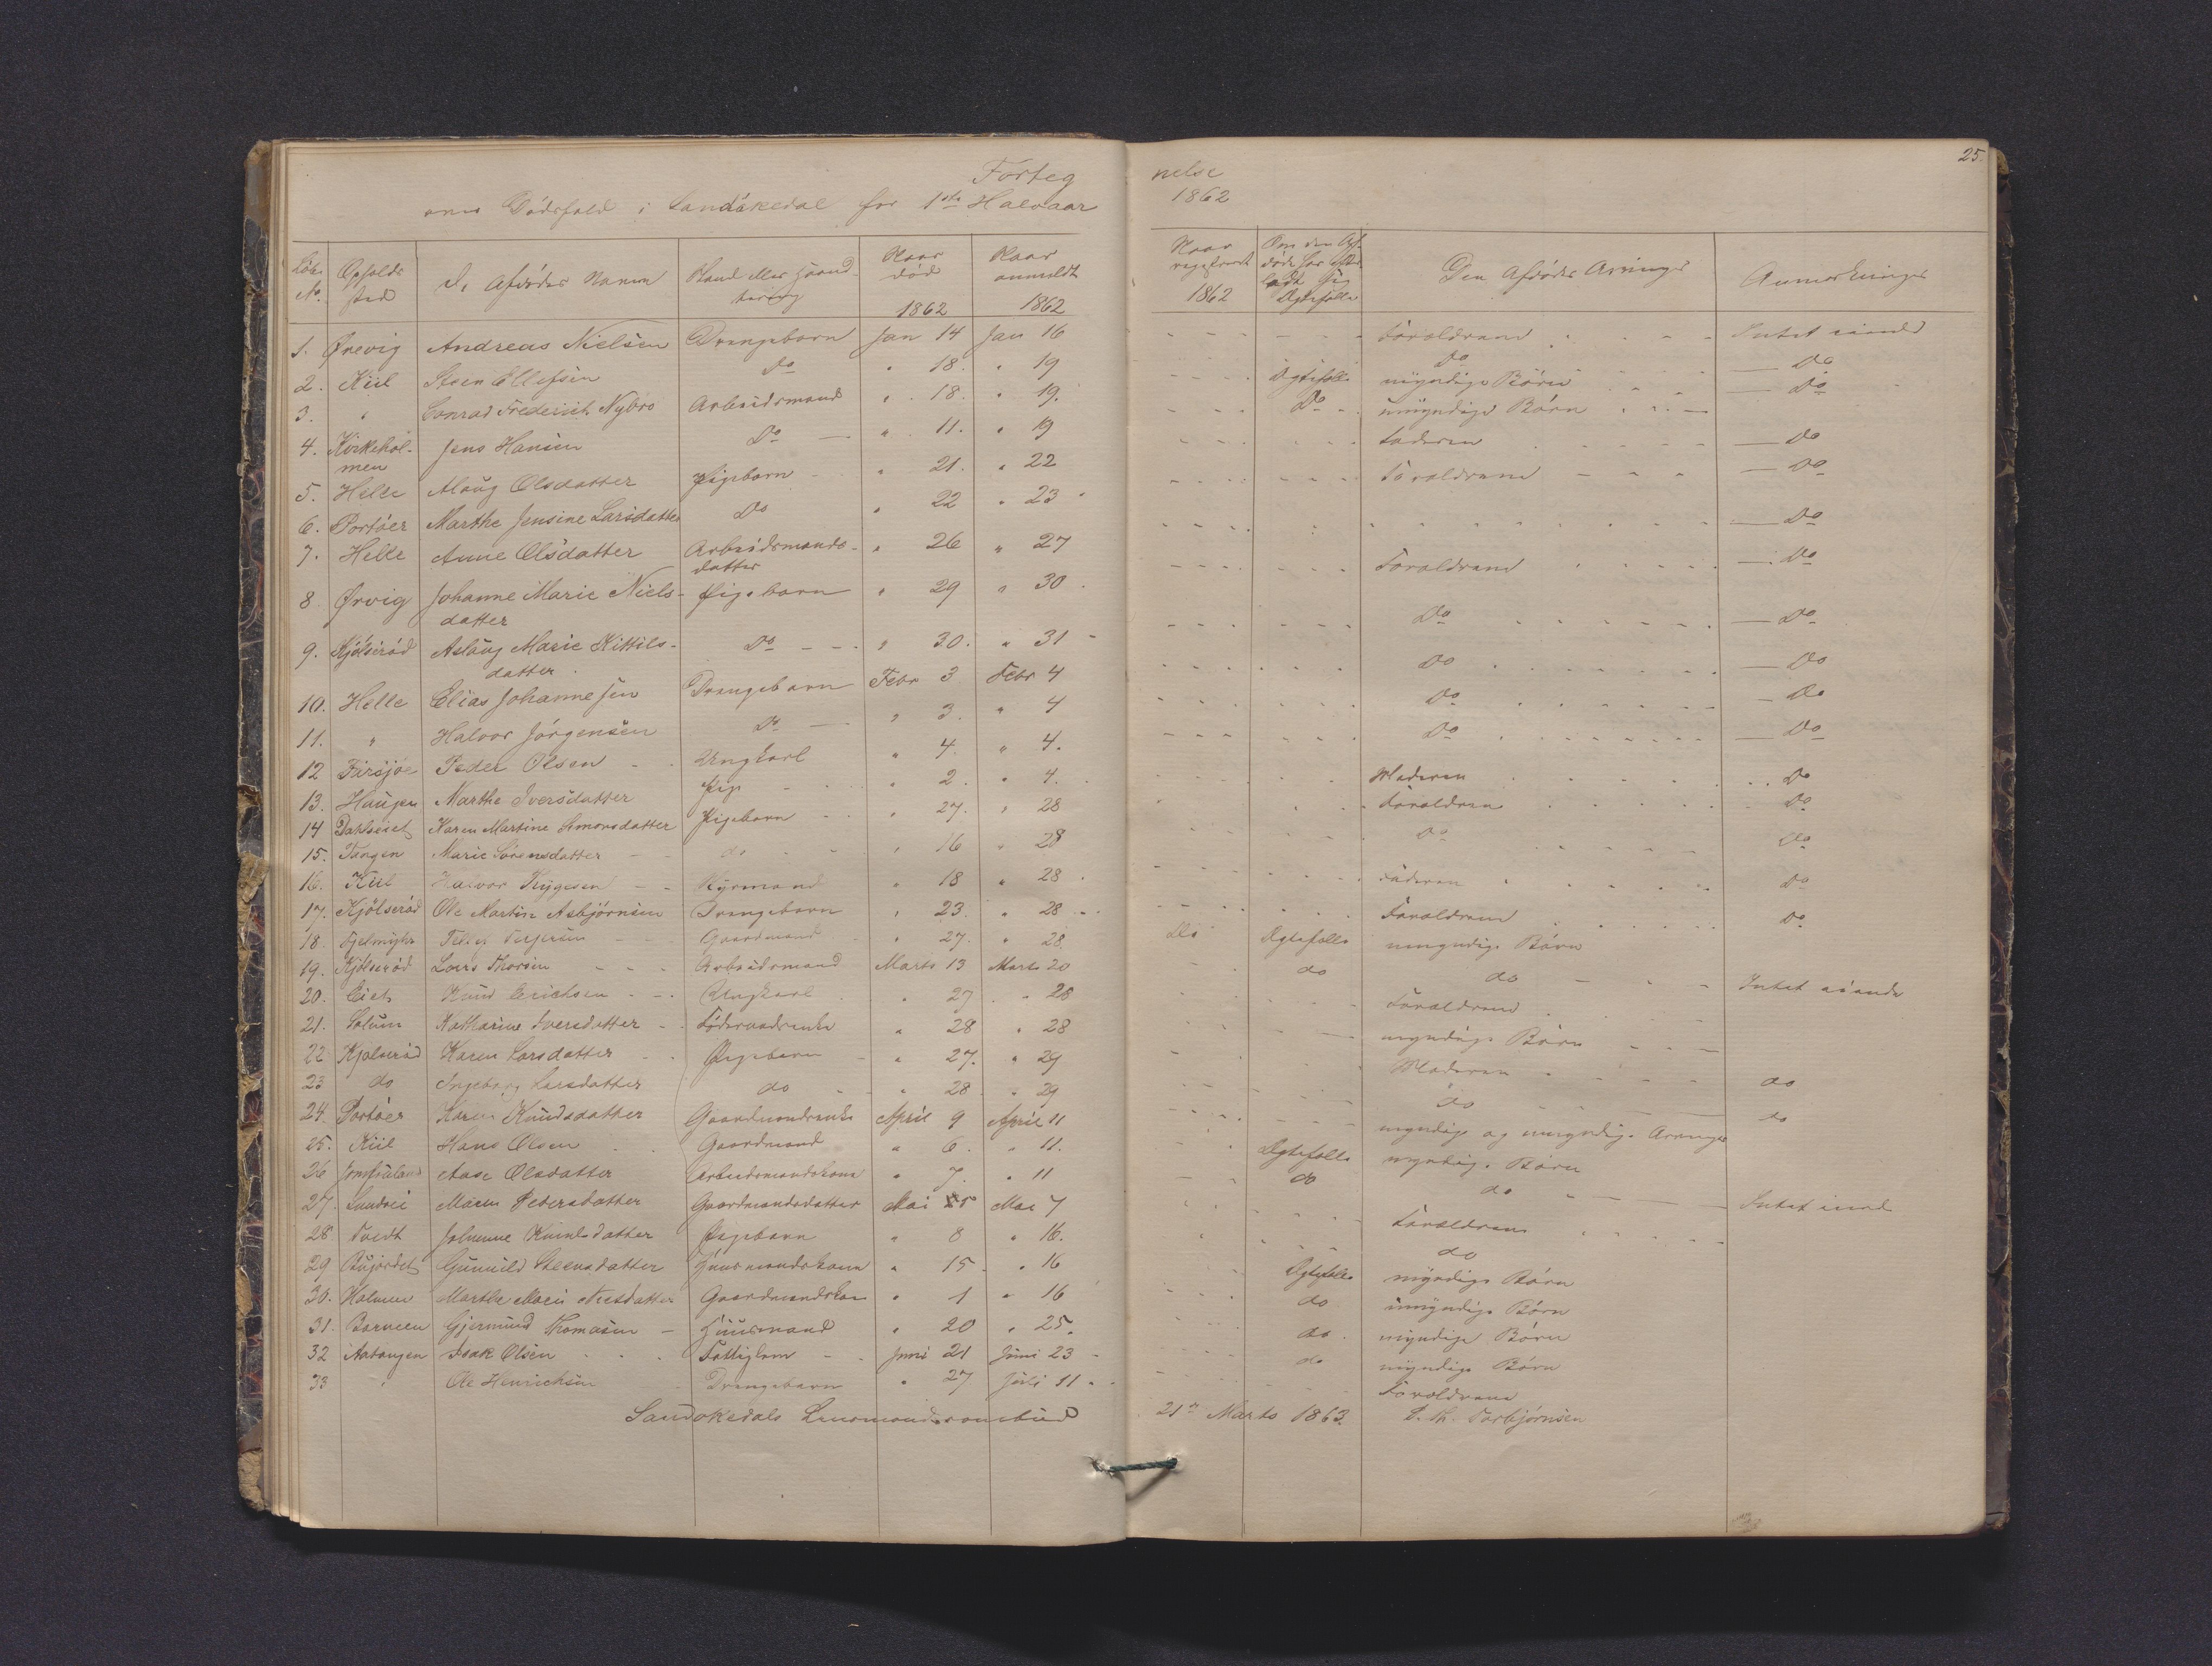 Forteg nelse 25.
over Dödsfald i Sandökedal for 1ste Halvaar 1862
Löbe No. Opholds sted De Afdödes Navne Stand eller Haand tering Naar död 1862 Naar anmeldt 1862 Naar registreret 1862 Om den Af döde har efter ladt sig Ægtefælle Den Afdödes Arvinger Anmærkninger
1. Ørevig Andreas Nielsen Drengebarn Jan 14 Jan 16 Forældrene Intet eiende
2. Kiil Steen Ellefsen Do " 18. " 19 Ægtefælle Do Do
3. " Conrad Frederick Nybro Arbeidsmand " 18. " 19. Do myndige Börn Do
4. Kirkehol- Jens Hansen Do " 11. " 19 umyndige Börn
men Faderen Do
5. Helle Aloug Olsdatter Pigebarn " 21. " 22 Forældrene Do
6. Portöer Marthe Jensine Larsdatter Do " 22 " 23 Do
7. Helle Anne Olsdatter Arbeidsmands- " 26 " 27 Forældrene Do
datter
8 Ørvig Johanne Marie Niels- Pigebarn " 29 " 30 Do Do
datter
9. Kjölseröd Aslaug Marie Kittils- Do " 30. " 31 Do Do
datter
10. Helle Elias Johannesen Drengebarn Febr 3 Febr 4 Do Do
11. " Halvor Jörgensen Do " 3. " 4 Do Do
12 Farsjöe Peder Olsen Ungkarl " 4. " 4. Moderen Do
13. Haugen Marthe Iversdatter Pige " 2. " 4. Forældrene Do
14 Dahlseiet Karen Martine Simonsdatter Pigebarn " 27. " 28 Do Do
15. Tangen Marie Sörensdatter do " 16 " 28
16. Kiil Halvor Kygesen " 18 " 28 Faderen Do
17. Kjölseröd Ole Martin Asbjörnsen Drengebarn " 23. " 28 Forældrene Do
18. Tellef Terjesen Gaardmand " 27. " 28. Ægtefælle umyndige Börn
19. Kjölseröd Lars Thorsen Arbeidsmand Marts 13 Marts 20 do do Intet eiende
20. Eiet Knud Erichsen Ungkarl " 27 " 28 Forældrene
21. Solum Katharine Iversdatter Föderaadsenke " 28 " 28 myndige Börn
22 Kjölseröd Karen Larsdatter Pigebarn " 27. " 29 Moderen do
23 do Ingeborg Larsdatter do " 28 " 29 do do
24. Portöer Karen Knudsdatter Gaardmandsenke April 9 April 11 myndige og umyndige Arvinger
25. Kiil Hans Olsen Gaardmand " 6. " 11. Ægtefælle myndige Börn
26 Jomfruland Aase Olsdatter Arbeidsmandskone " 7. " 11 do do
27. Maren Pedersdatter Gaardmandsdatter Mai 5 Mai 7 Forældrene Intet eiende
28 Tvedt Johanne Knudsdatter Pigebarn " 8 " 16. do
29 Gunnild Steensdatter Huusmandskone " 15 " 16 Ægtefælle myndige Börn
30. Holmen Marthe Marie Nielsdatter Gaardmandskone " 1 " 16 do umyndige Börn
31. Barmen Gjermund Thomasen Huusmand " 20 " 25. do myndige Börn
32 Aatangen Isak Olsen Fattiglem Juni 21 Juni 23 do myndige Börn
33 " Ole Henrichsen Drengebarn " 27 Juli 11 Forældrene
Sandökedals Lensmandsombud 21de Marts 1863. Torbjörnsen